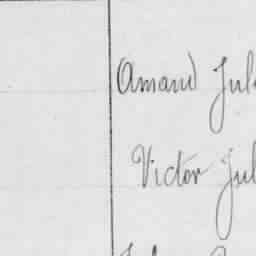 Amand Jul
Victor Jul